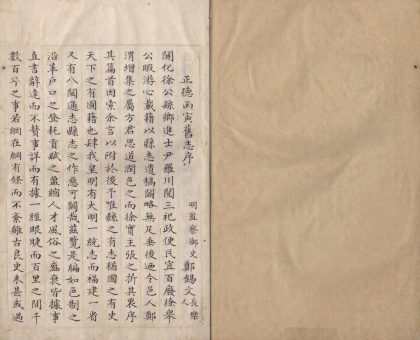 正德丙寅舊志序
明監察御史鄭錫文長樂人
開化徐公縣鄉進士尹羅川閱三祀政便民宜百廢徐舉
公暇游心載籍以縣志遺稿闊略無足垂後迺令邑人鄭
渭增集之屬方君思道潤色之而徐實主張之折其衷序
其篇首因索余言以附於後予惟縣之有志猶國之有史
天下之有圖籍也肆我皇明有大明一統志而福建一省
又有八閩通志縣志之作惡可闕哉茲覽是編如邑制之
沿革戶口之登耗貢賦之盈縮人才風俗之盛衰皆據事
直書辭達而不贅事詳而有據一經眼睫而百里之間千
數百年之事若綱在綱有條而不紊雖古良史未甚或過